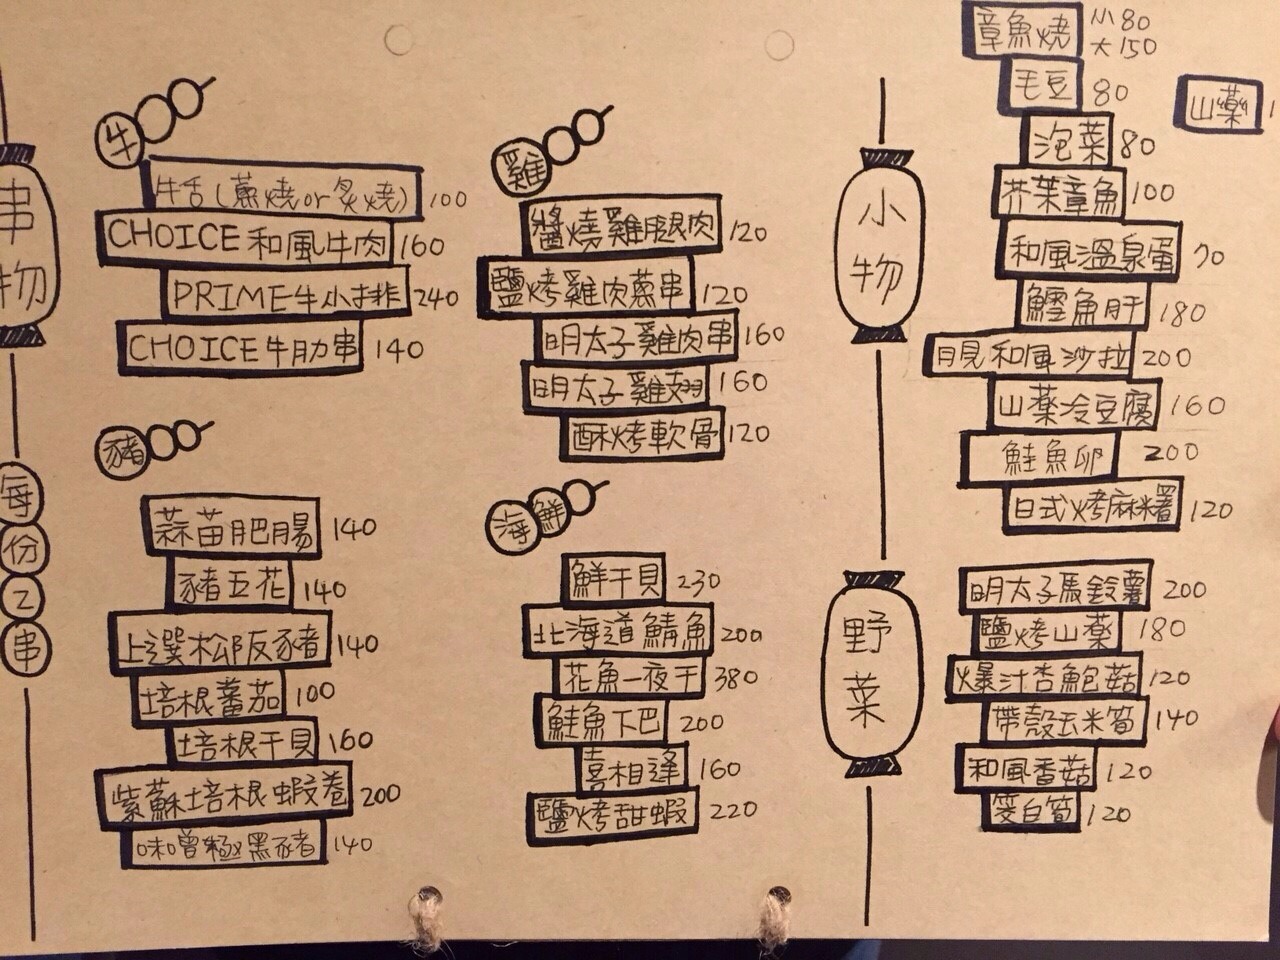 串物
每份2串
牛
牛舌(蔥燒or炙燒) 100
CHOICE和風牛肉 160
PRIME牛小排 240
CHOICE牛肋串 140
豬
蒜苗肥腸 140
豬五花 140
上選松阪豬 140
培根蕃茄 100
培根干貝 160
紫蘇培根蝦卷 200
味噌極黑豬 140
雞
醬燒雞腿肉 120
鹽烤雞肉蔥串 120
明太子雞肉串 160
明太子雞翅 160
酥烤軟骨 120
海鮮
鮮干貝 230
北海道鯖魚 200
花魚一夜干 380
鮭魚下巴 200
喜相逢 160
鹽烤甜蝦 220
小物
章魚燒 小80
大150
毛豆 80
山藥
泡菜 80
芥茉章魚 100
和風溫泉蛋 70
鱈魚肝 180
月見和風沙拉 200
山藥冷豆腐 160
鮭魚卵 200
日式烤麻糬 120
野菜
明太子馬鈴薯 200
鹽烤山藥 180
爆汁杏鮑菇 120
帶殼玉米筍 140
和風香菇 120
筊白筍 120